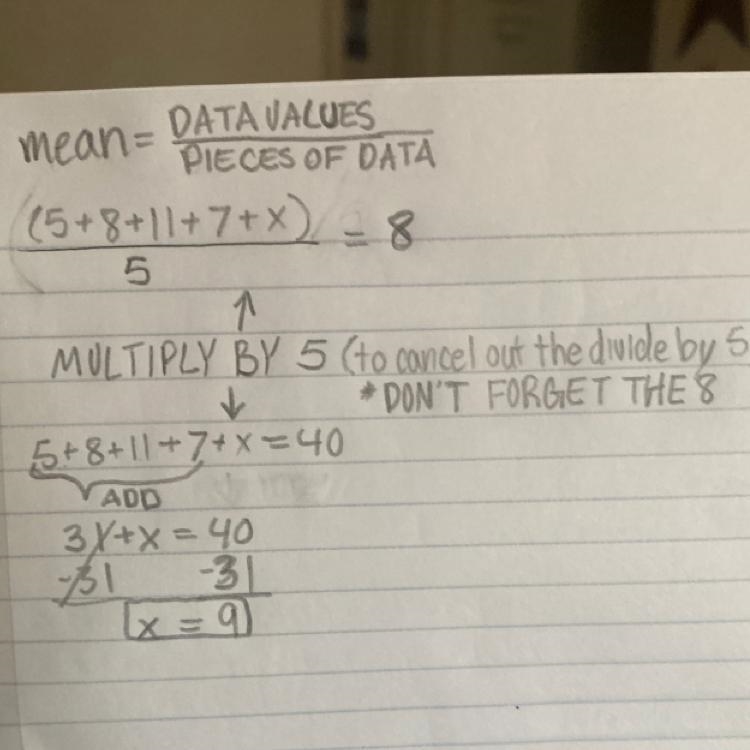 mean = DATA VALUES
PIECES OF DATA
(5+8+11+7+x) = 8
5
↑
MULTIPLY BY 5 (to cancel out the divide by 5
↓ *DON'T FORGET THE 8
5+8+11+7+x=40
ADD
31+x = 40
-31 -31
x = 9